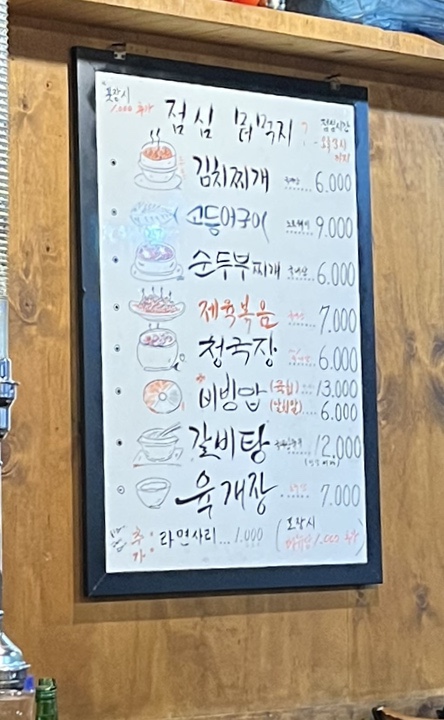 포장시
1.000 추가
점심 뭐먹지?
점심시간
오후3시
까지
김치찌개 6.000
고등어구이 9.000
순두부찌개 6.000
제육볶음 7.000
청국장 6.000
비빔밥 13.000
6.000
갈비탕 12.000
육개장 7.000
추가 라면사리...1.000
포장시
1.000 추가